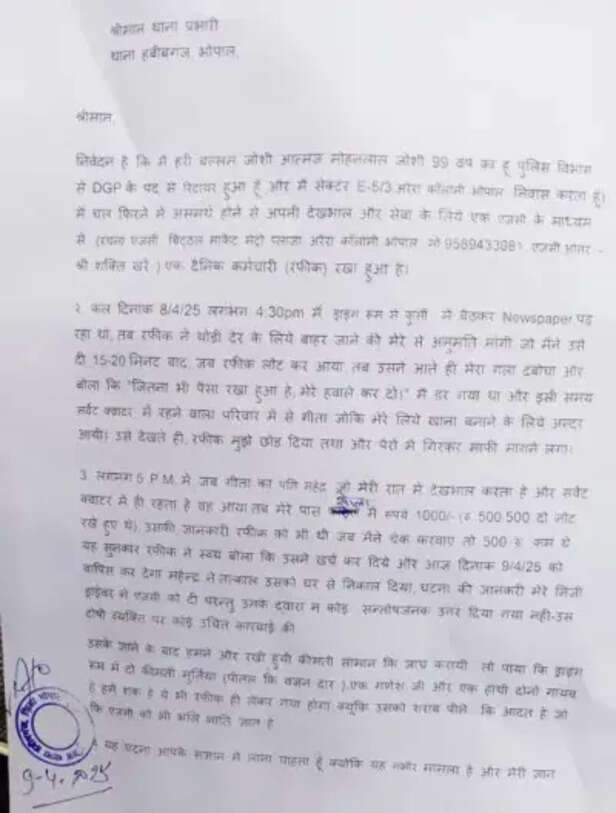 श्रीमान थाना प्रभारी
थाना हबीबगंज, भोपाल,
श्रीमान,
निवेदन है कि मै हरी बल्लम जोशी आत्मज मोहनलाल जोशी 99 वर्ष का हू पुलिस विभाग
से DGP के पद से रिटायर हुआ हूँ और मैं सेक्टर E-5/3 अरेरा कॉलोनी भोपाल निवास करता हूं।
में चल फिरने में असमर्थ होने से अपनी देखभाल और सेवा के लिये एक एजेंसी के माध्यम
से (रचना एजेंसी बिट्ठल मार्केट मेट्रो प्लाजा अरेरा कॉलोनी भोपाल मो 9589433081, एजेंसी ओनर -
श्री शक्ति खरे ) एक दैनिक कर्मचारी (रफीक) रखा हुआ है।
२. कल दिनांक 8/4/25 लगभग 4.30pm में ड्राइंग रूम में कुर्सी में बैठकर Newspaper पढ़
रहा था, तब रफीक ने थोड़ी देर के लिये बाहर जाने की मेरे से अनुमति मांगी जो मैंने उसे
दी 15-20 मिनट बाद, जब रफीक लौट कर आया, तब उसने आते ही मेरा गला दबोचा और
बोला कि "जितना भी पैसा रखा हुआ है, मेरे हवाले कर दो।" मैं डर गया था और इसी समय
सर्वेंट क्वाटर में रहने वाला परिवार में से गीता जोकि मेरे लिये खाना बनाने के लिये अन्दर
आयी। उसे देखते ही, रफीक मुझे छोड दिया तथा और पैरो में गिरकर माफी मांगने लगा।
3. लगभग 5 P.M. में जब गीता का पति महेंद्र जो मेरी रात में देखभाल करता है और सर्वेंट
क्वाटर में ही रहता है वह आया तब मेरे पास में रूपये 1000/- (रु 500,500 दो नोट
रखे हुए थे), उसकी जानकारी रफीक को भी थी जब मैंने चेक करवाए तो 500 रु कम थे
यह सुनकर रफीक ने स्वयं बोला कि उसने खर्च कर दिये और आज दिनांक 9/4/25 को
वापिस कर देगा महेन्द्र ने तत्काल उसको घर से निकाल दिया, घटना की जानकारी मेरे निजी
ड्राईवर ने एजेंसी को दी परन्तु उनके द्वारा न कोई सन्तोषजनक उत्तर दिया गया नही-उस
दोषी व्यक्ति पर कोई उचित कारवाई की
उसके जाने के बाद हमने और रखी हुयी कीमती सामान कि जांच करायी तो पाया कि ड्राइंग
रूम में दो कीमती मुर्तिया (पीतल कि वजन दार ),एक गणेश जी और एक हाथी दोनो गायब
है हमे शक है ये भी रफीक ही लेकर गया होगा क्यूकि उसको शराब पीने कि आदत है जो
कि एजेंसी को भी भलि भाति ज्ञात है
4 यह घटना आपके संज्ञान मे लाना चाहता हूँ क्योंकि यह गंभीर मामला है और मेरी जान
9-4-2025